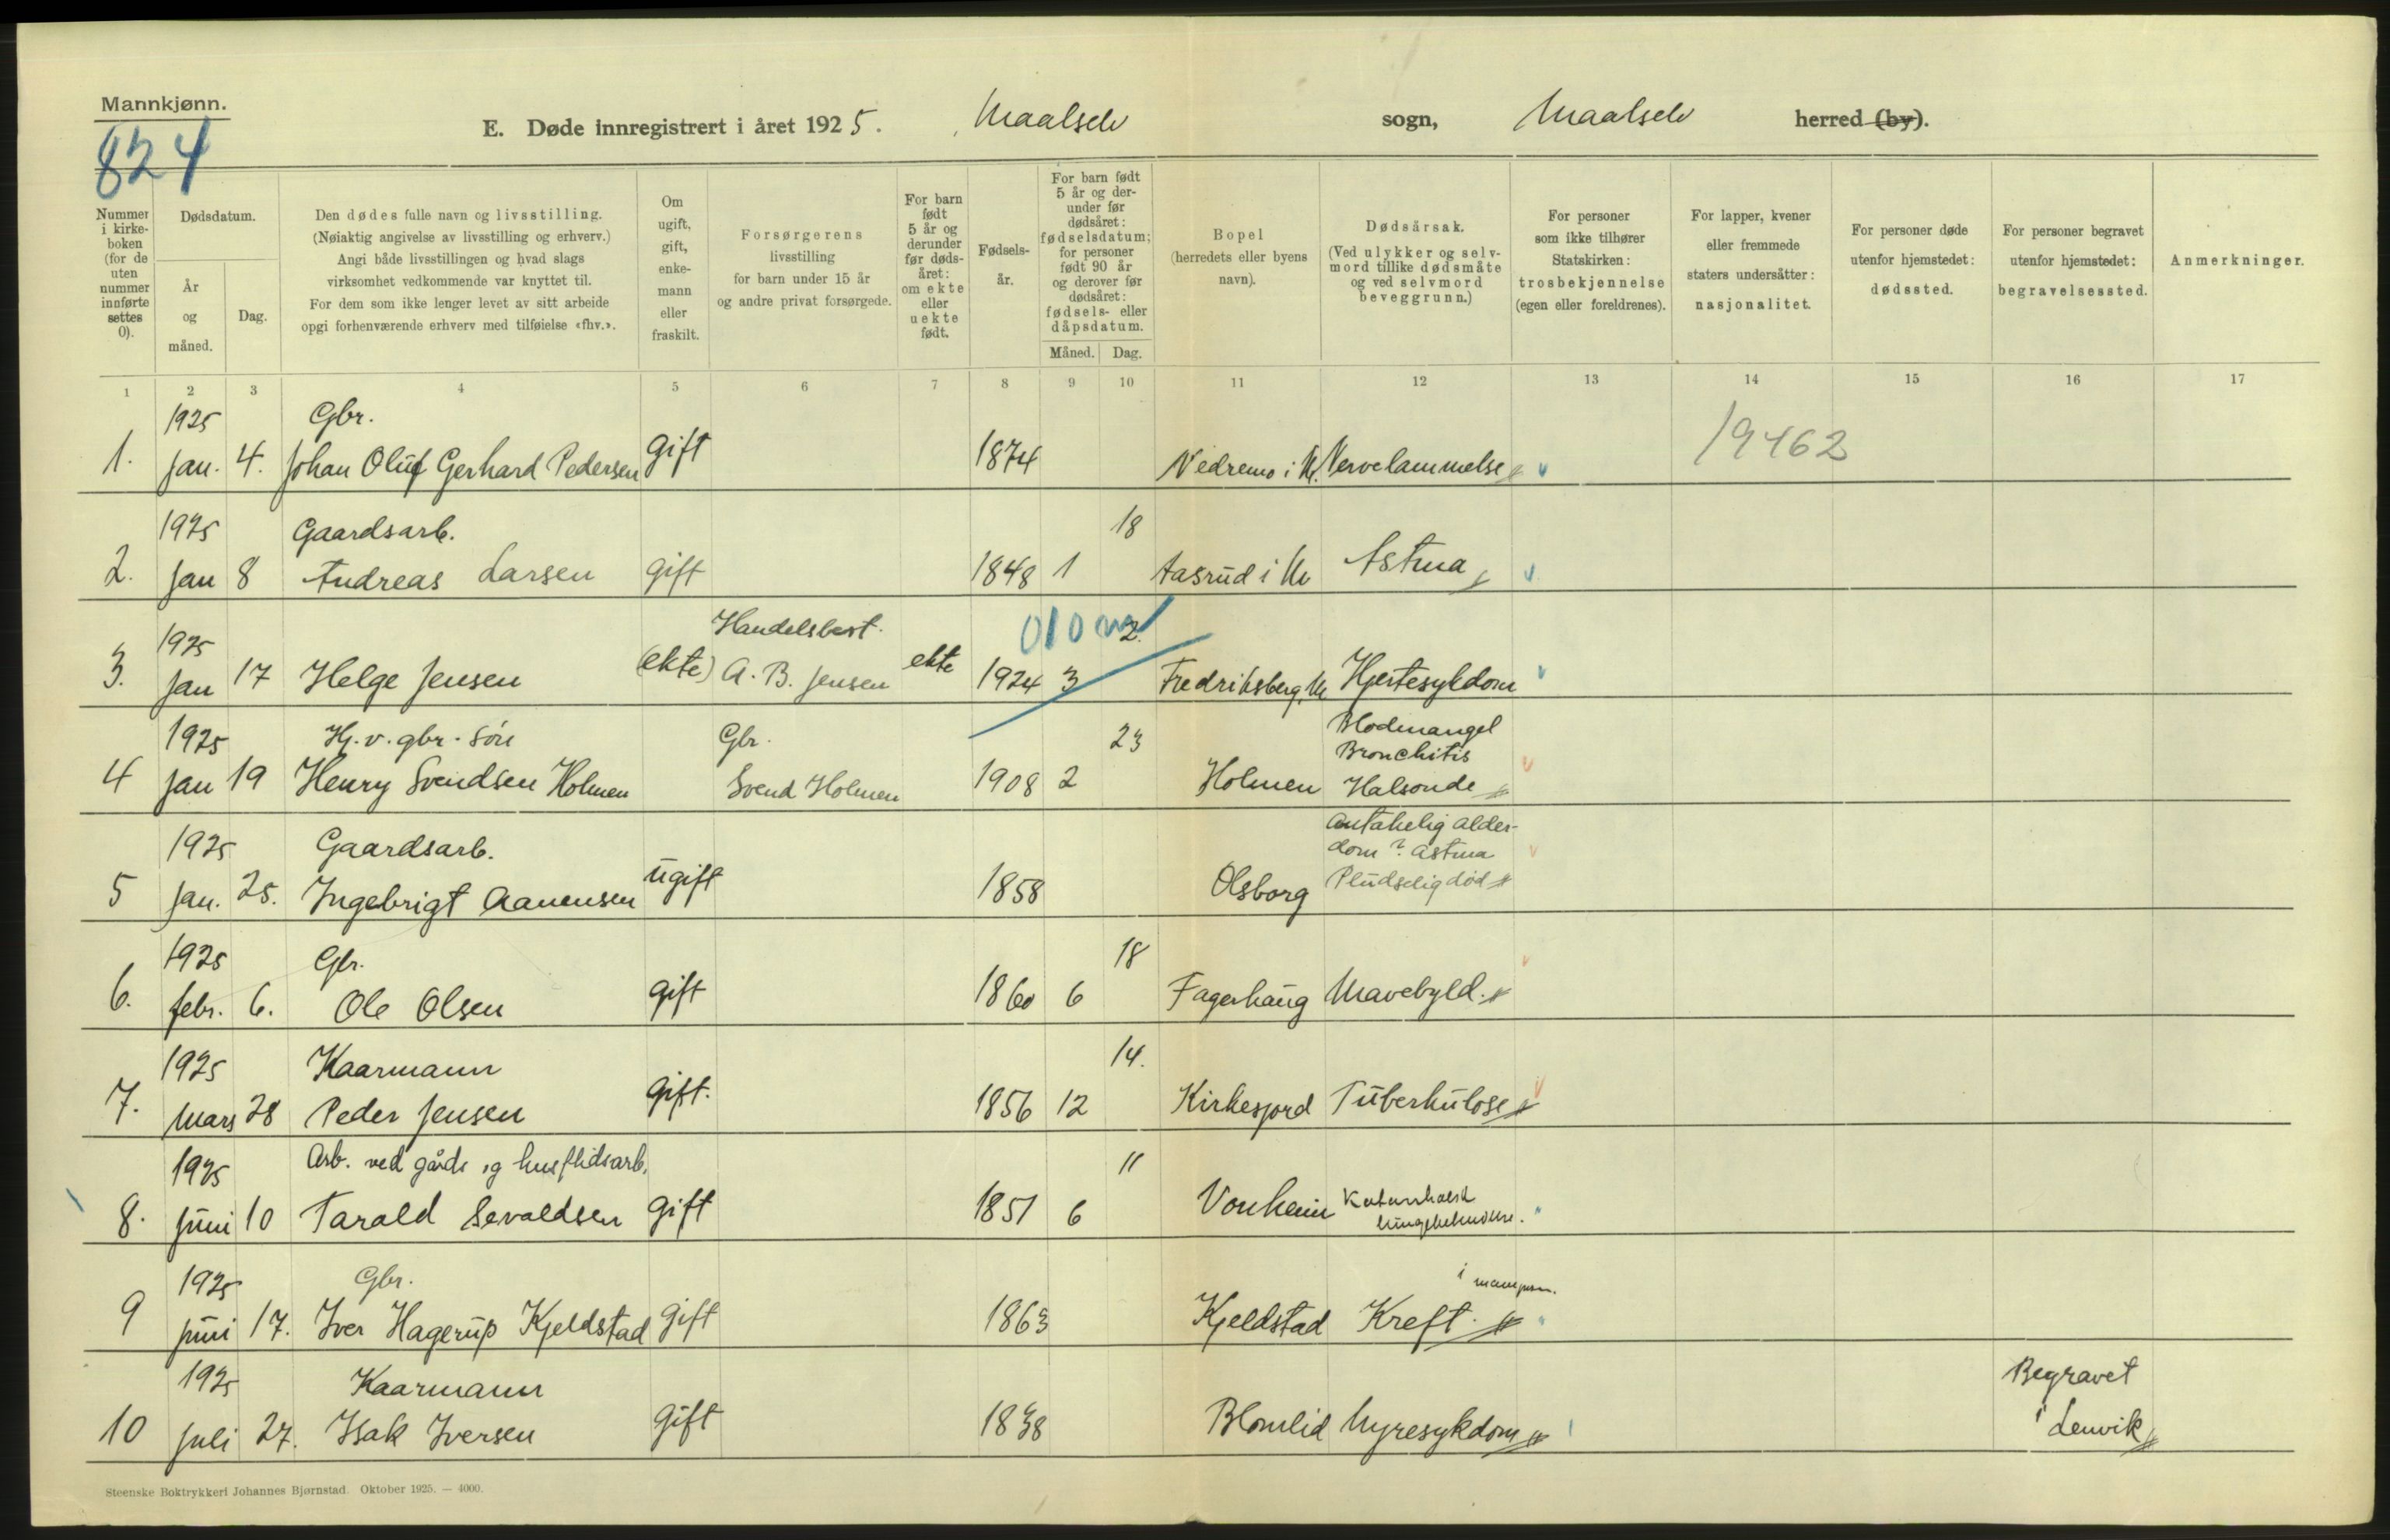 Mannkjønn.
824
E. Døde innregistrert i året 1925. Maalselv sogn, Maalselv herred (by).
Nummer i kirke-boken (for de uten nummer innførte settes 0).
Dødsdatum.
År og måned.
Dag.
Den dødes fulle navn og livsstilling.
(Nøiaktig angivelse av livsstilling og erhverv.)
Angi både livsstillingen og hvad slags
virksomhet vedkommende var knyttet til.
For dem som ikke lenger levet av sitt arbeide
opgi forhenværende erhverv med tilføielse «fhv.».
Om ugift, gift, enke-mann eller fraskilt.
Forsørgerens
livsstilling
for barn under 15 år
og andre privat forsørgede.
For barn født 5 år og derunder før døds-året: om ekte eller uekte født.
Fødsels-år.
For barn født 5 år og der-under før dødsåret: fødselsdatum; for personer født 90 år og derover før dødsåret: fødsels- eller dåpsdatum.
Måned. Dag.
Bopel
(herredets eller byens
navn).
Dødsårsak.
(Ved ulykker og selv-
mord tillike dødsmåte
og ved selvmord
beveggrunn.)
For personer
som ikke tilhører
Statskirken:
trosbekjennelse
(egen eller foreldrenes).
For lapper, kvener
eller fremmede
staters undersåtter:
nasjonalitet.
For personer døde
utenfor hjemstedet:
dødssted.
For personer begravet
utenfor hjemstedet:
begravelsessted.
Anmerkninger.
1 2 3 4 5 6 7 8 9 10 11 12 13 14 15 16 17
1925 Gbr. 19462
1. jan. 4. Johan Oluf Gerhard Pedersen gift 1874 Nedremo i M. Nervelammelse
1925 Gaardsarb. 18
2. jan 8 Andreas Larsen gift 1848 1 Aasrud i M Astma
1925 Handelsbest. 010 2.
3. jan 17 Helge Jensen (ekte) A. B. Jensen ekte 1924 3 Fredriksberg, M Hjertesykdom
1925 Hj. v. gbr. Søn Gbr. 23 Blodmangel
Bronchitis
4 jan 19 Henry Svendsen Holmen Svend Holmen 1908 2 Holmen Halsonde
1925 Gaardsarb. Antakelig alder-
dom? Astma
5 jan. 25. Ingebrigt Aanensen ugift 1858 Olsborg Pludselig død
1925 Gbr. 18
6. febr. 6. Ole Olsen gift 1860 6 Fagerhaug Mavebyld.
1925 Kaarmann 14.
7. mars 28 Peder Jensen gift. 1856 12 Kirkesjord Tuberkulose
1925 Arb. ved gårds og husflidsarb. 11
8. juni 10 Tarald Sevaldsen gift 1851 6 Vonheim Katarrhalsk
1925 Gbr. i
9 juni 17. Iver Hagerup Kjeldstad gift 1863 Kjeldstad Kreft.
1925 Kaarmann Begravet
10 juli 27. Isak Iversen gift 1838 Blomlid Nyresykdom i Lenvik
Steenske Boktrykkeri Johannes Bjørnstad. Oktober 1925. — 4000.